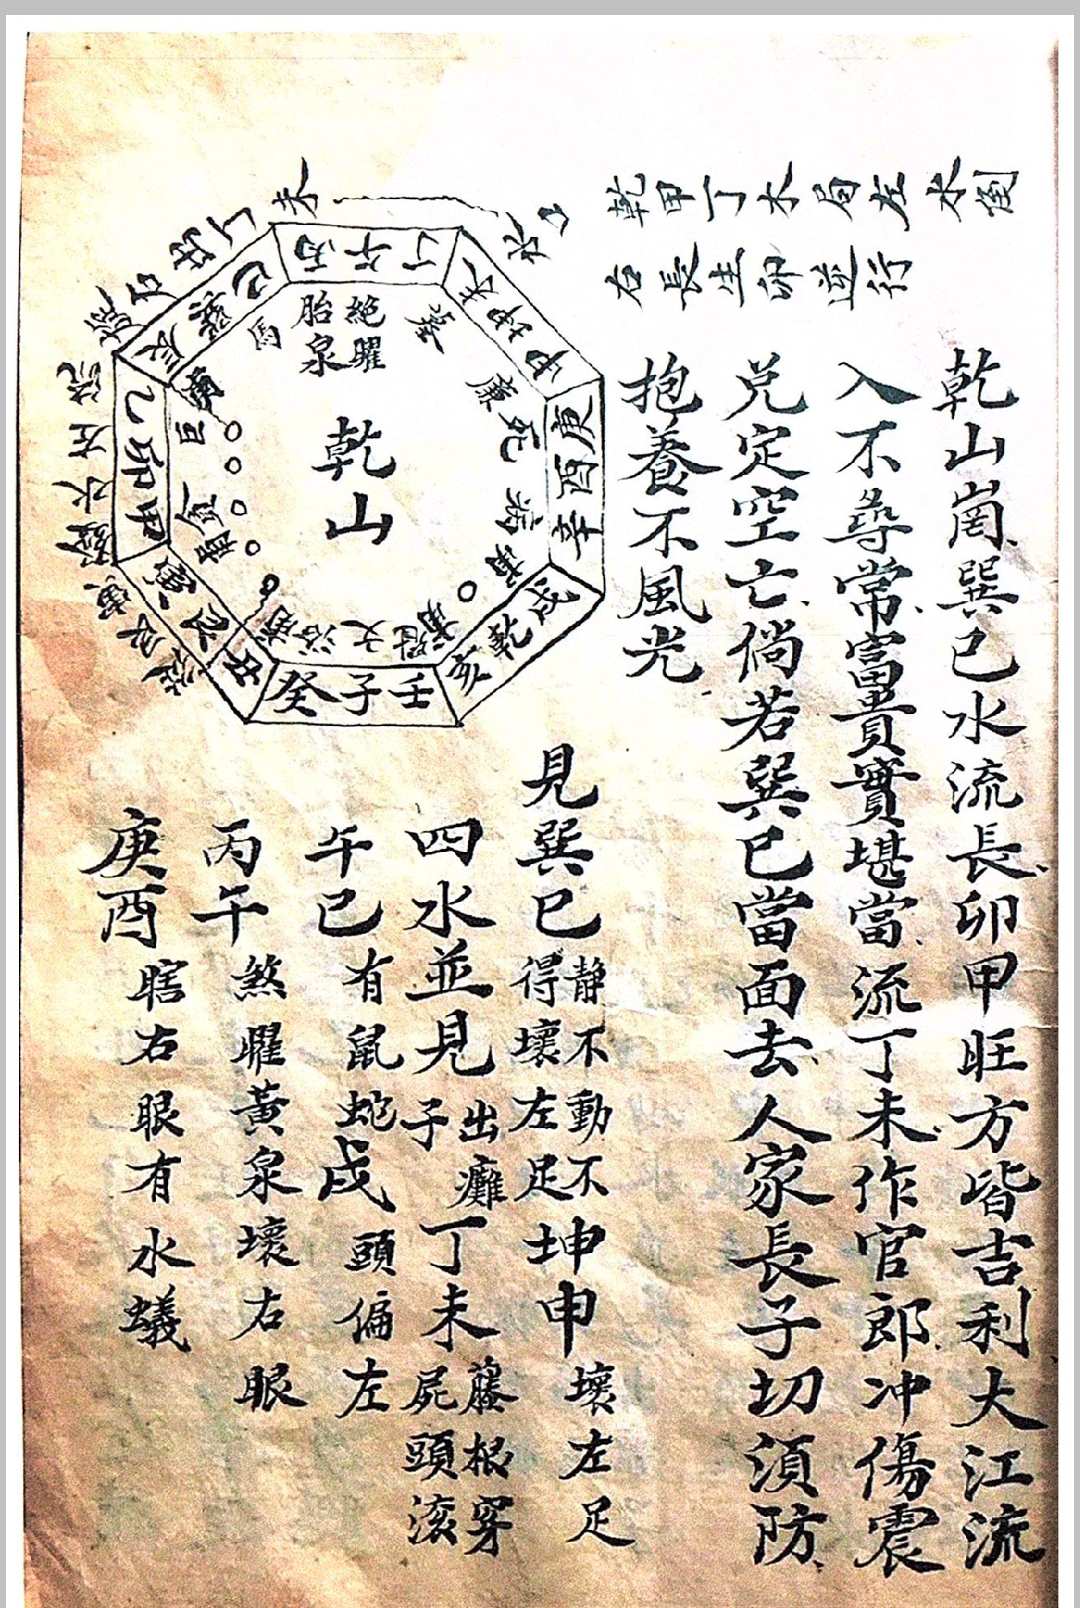 乾甲丁木局左水倒
右長生卯逆行
乾山崗巽巳水流長卯甲旺方皆吉利大江流
入不尋常富貴實堪當流丁未作官郎冲傷震
兌定空亡倘若巽巳當面去人家長子切須防
抱養不風光
見巽巳得壞左足静不動不坤申壞左足
四水並見子出癱丁未屍頭滚藤根穿
午巳有鼠蛇戌頭偏左
丙午煞曜黃泉壞右眼
庚酉瞎右眼有水蟻
乾山
丙午丁
未坤申
庚酉辛
乾亥
壬子癸
丑艮寅
甲卯乙
辰巽巳
胎泉
絕曜
墓
廉死
病